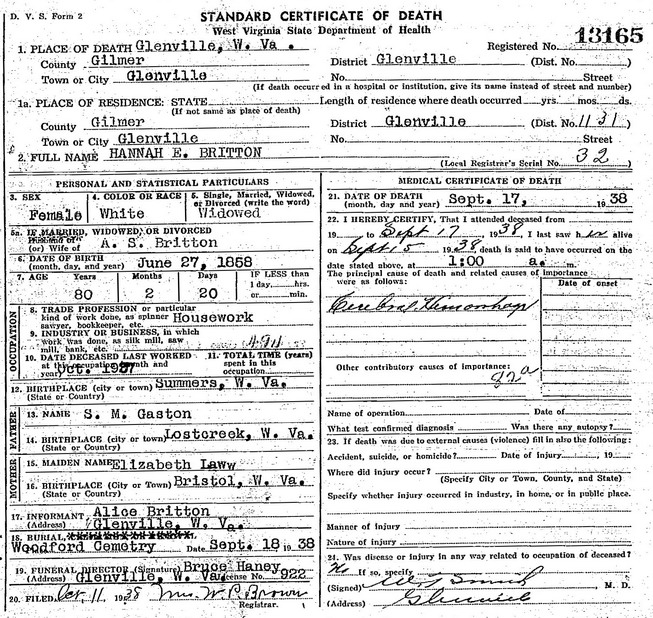 D. V. S. Form 2
STANDARD CERTIFICATE OF DEATH
West Virginia State Department of Health
13165
1. PLACE OF DEATH Glenville, W. Va.
Registered No.
County Gilmer
District Glenville (Dist. No. )
Town or City Glenville
No. Street
(If death occurred in a hospital or institution, give its name instead of street and number)
1a. PLACE OF RESIDENCE: STATE
Length of residence where death occurred yrs. mos. ds.
(If not same as place of death)
County Gilmer
District Glenville (Dist. No. 1131)
Town or City Glenville
No. Street
2. FULL NAME HANNAH E. BRITTON
32
(Local Registrar's Serial No. )
PERSONAL AND STATISTICAL PARTICULARS
3. SEX
Female
4. COLOR OR RACE
White
5. Single, Married, Widowed,
or Divorced (write the word)
Widowed
5a. IF MARRIED, WIDOWED, OR DIVORCED
Husband of
(or) Wife of A. S. Britton
6. DATE OF BIRTH
(month, day, and year) June 27, 1858
7. AGE Years Months Days IF LESS than
1 day, hrs.
or min.
80 2 20
OCCUPATION
8. TRADE PROFESSION or particular
kind of work done, as spinner Housework
sawyer, bookkeeper, etc.
9. INDUSTRY OR BUSINESS, in which
work was done, as silk mill, saw
mill, bank, etc.
10. DATE DECEASED LAST WORKED
at this occupation (month and
year) Oct. 1937
11. TOTAL TIME (years)
spent in this
occupation
12. BIRTHPLACE (city or town) Summers, W. Va.
(State or Country)
FATHER
13. NAME S. M. Gaston
14. BIRTHPLACE (city or town) Lostcreek, W. Va.
(State or Country)
MOTHER
15. MAIDEN NAME Elizabeth Laww
16. BIRTHPLACE (City or Town) Bristol, W. Va.
(State or Country)
17. INFORMANT Alice Britton
(Address) Glenville, W. Va.
18. BURIAL,
Woodford Cemetry Date Sept. 18 1938
19. FUNERAL DIRECTOR (Signature) Bruce Haney
(Address) Glenville, W. Va. License No. 922
20. FILED Oct, 11, 1938 Mrs. W. P. Brown
Registrar.
MEDICAL CERTIFICATE OF DEATH
21. DATE OF DEATH
(month, day, and year) Sept. 17, 1938
22. I HEREBY CERTIFY, That I attended deceased from
19 to Sept 17 1938, I last saw her alive
on Sept 15 1938, death is said to have occurred on the
date stated above, at 1:00 a. m.
The principal cause of death and related causes of importance
were as follows:
Date of onset
Cerebral
Other contributory causes of importance:
82a
Name of operation Date of
What test confirmed diagnosis Was there any autopsy?
23. If death was due to external causes (violence) fill in also the following:
Accident, suicide, or homicide? Date of injury , 19
Where did injury occur?
(Specify City or Town, County, and State)
Specify whether injury occurred in industry, in home, or in public place.
Manner of injury
Nature of injury
24. Was disease or injury in any way related to occupation of deceased?
No If so, specify
(Signed) M. D.
(Address)